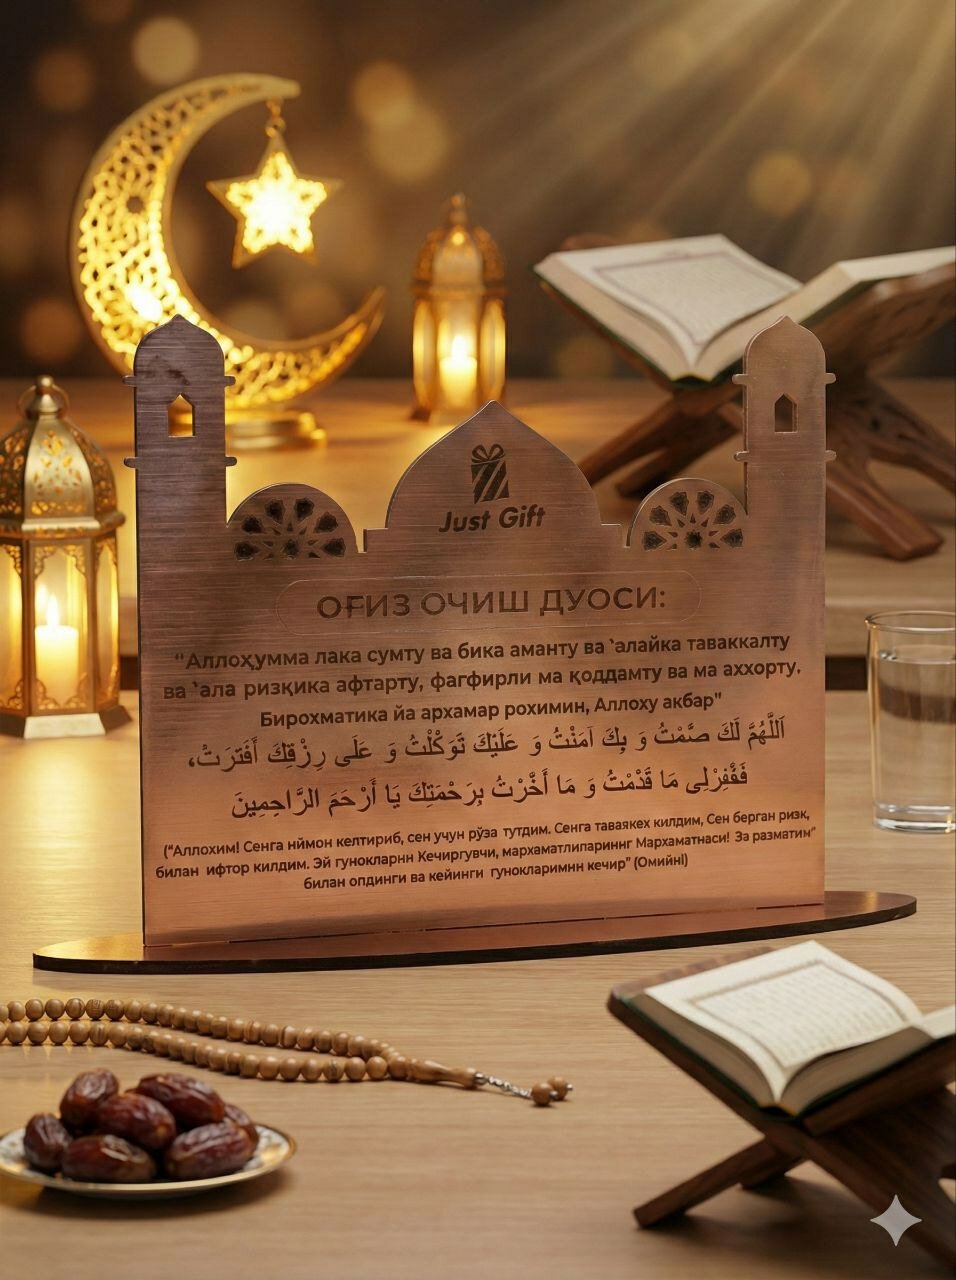 Just Gift
ОҒИЗ ОЧИШ ДУОСИ:
“Аллоҳумма лака сумту ва бика аманту ва ‵алайка таваккалту
ва ‵ала ризқика афтарту, фагфирли ма қоддамту ва ма аххорту,
Бирохматика йа архамар рохимин, Аллоху акбар"
اَللَّهُمَّ لَكَ صُمْتُ وَ بِكَ آمَنْتُ وَ عَلَيْكَ تَوَكَّلْتُ وَ عَلَى رِزْقِكَ أَفَتَرَتُ،
فَقْفِرْلِى مَا قَدَّمْتُ وَ مَا أَخَّرْتُ بِرَحْمَتِكَ يَا أَرْحَمَ الرَّاحِمِينَ
(“Аллохим! Сенга нймон келтириб, сен учун рўза тутдим. Сенга таваякех килдим, Сен берган ризк,
билан ифтор килдим. Эй гунокларнн Кечиргувчи, мархаматлипариннг Мархаматнаси! За разматим”
билан опдинги ва кейинги гунокларимнн кечир” (Омийнl)